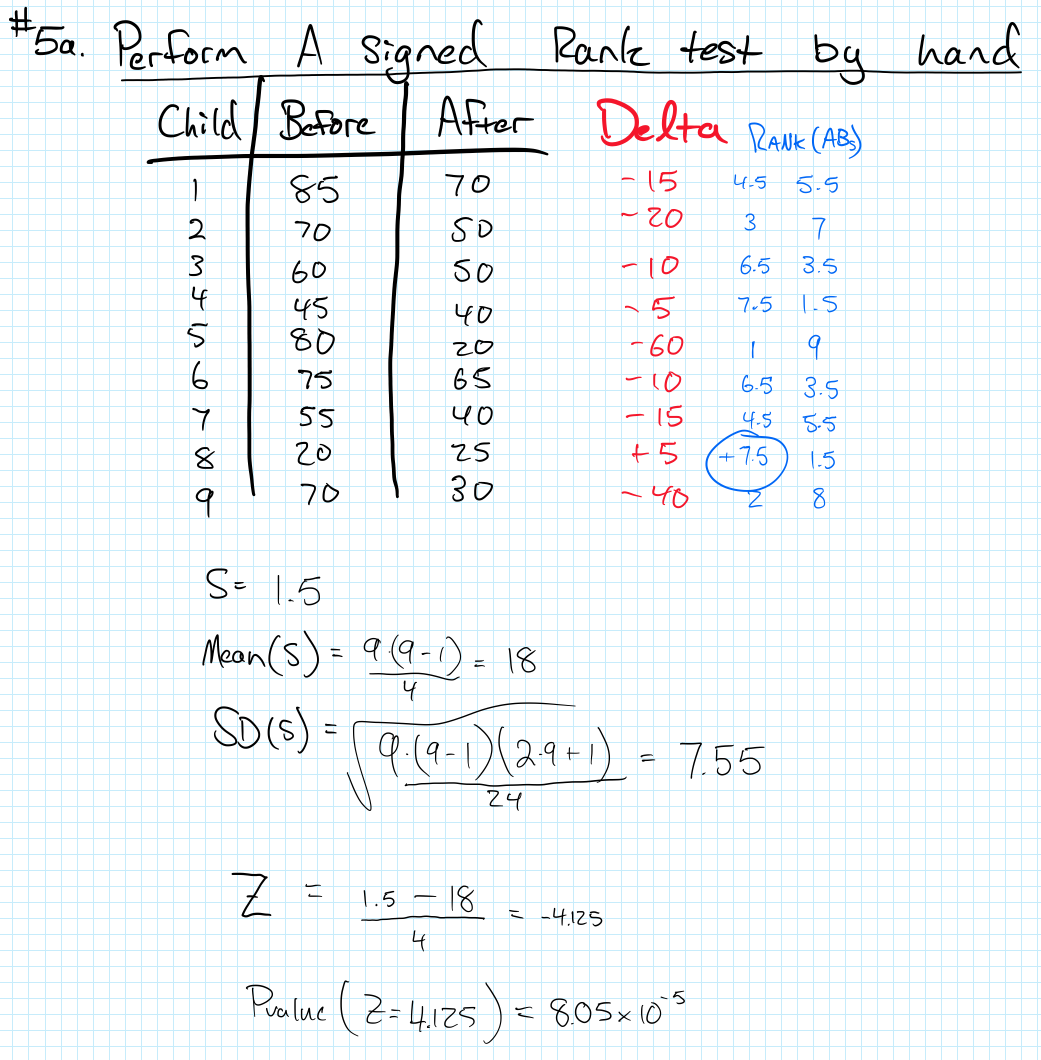 #5a. Perform A signed Rank test by hand
Child Before After Delta RANK(ABs)
1 85 70 -15 4.5 5.5
2 70 50 -20 3 7
3 60 50 -10 6.5 3.5
4 45 40 -5 7.5 1.5
5 80 20 -60 1 9
6 75 65 -10 6.5 3.5
7 55 40 -15 4.5 5.5
8 20 25 +5 +7.5 1.5
9 70 30 -40 2 8
S= 1.5
Mean(S) = 9.(9-1)/4 = 18
SD(S) = √(9.(9-1)(2.9+1)/24) = 7.55
Z = 1.5 - 18/4 = -4.125
Pvalue (Z=4.125) = 8.05×10^-5